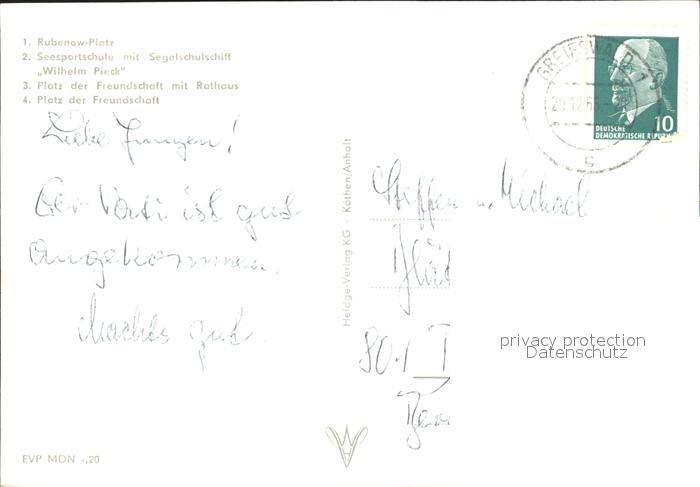 1. Rubenow-Platz
2. Seesportschule mit Segelschulschiff
„Wilhelm Pieck"
3. Platz der Freundschaft mit Rathaus
4. Platz der Freundschaft
Liebe Jungen!
Der Vati ist gut
angekommen.
Machts gut.
EVP MDN -,20
Heldge-Verlag KG · Köthen/Anhalt
GREIFSWALD 1
C
DEUTSCHE
DEMOKRATISCHE REPUBLIK
10
Steffen u. Michael
801
privacy protection
Datenschutz